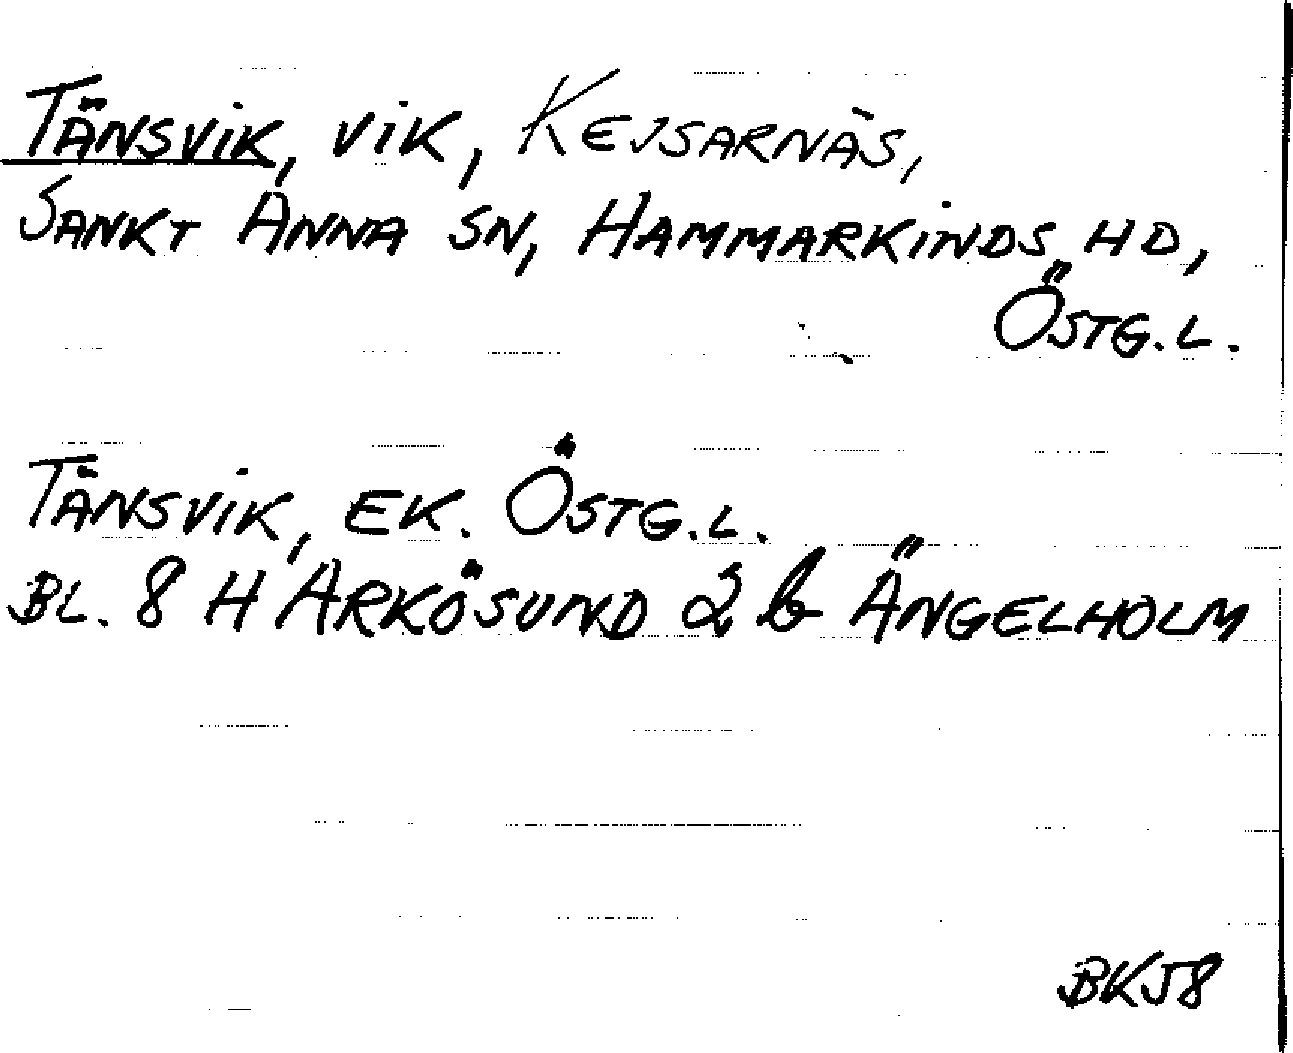 TÄNSVIK, VIK, KEJSARNÄS,
SANKT ANNA SN, HAMMARKINDS HD,
ÖSTG.L.
TÄNSVIK, EK. ÖSTG.L.
BL. 8 H ARKÖSUND 2 b ÄNGELHOLM
BK58